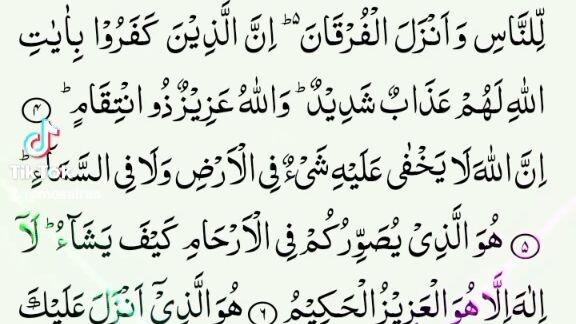 لِّلنَّاسِ وَ اَنْزَلَ الْفُرْقَانَ ۬ؕ اِنَّ الَّذِيْنَ كَفَرُوْا بِاٰيٰتِ
اللّٰهِ لَهُمْ عَذَابٌ شَدِيْدٌ ؕ وَاللّٰهُ عَزِيْزٌ ذُو انْتِقَامٍ ؕ ۴
اِنَّ اللّٰهَ لَا يَخْفٰى عَلَيْهِ شَىْءٌ فِى الْاَرْضِ وَلَا فِى السَّمَآءِ ؕ
۵ هُوَ الَّذِىْ يُصَوِّرُكُمْ فِى الْاَرْحَامِ كَيْفَ يَشَآءُ ؕ لَاۤ
اِلٰهَ اِلَّا هُوَ الْعَزِيْزُ الْحَكِيْمُ ۶ هُوَ الَّذِىْۤ اَنْزَلَ عَلَيْكَ
TikTok